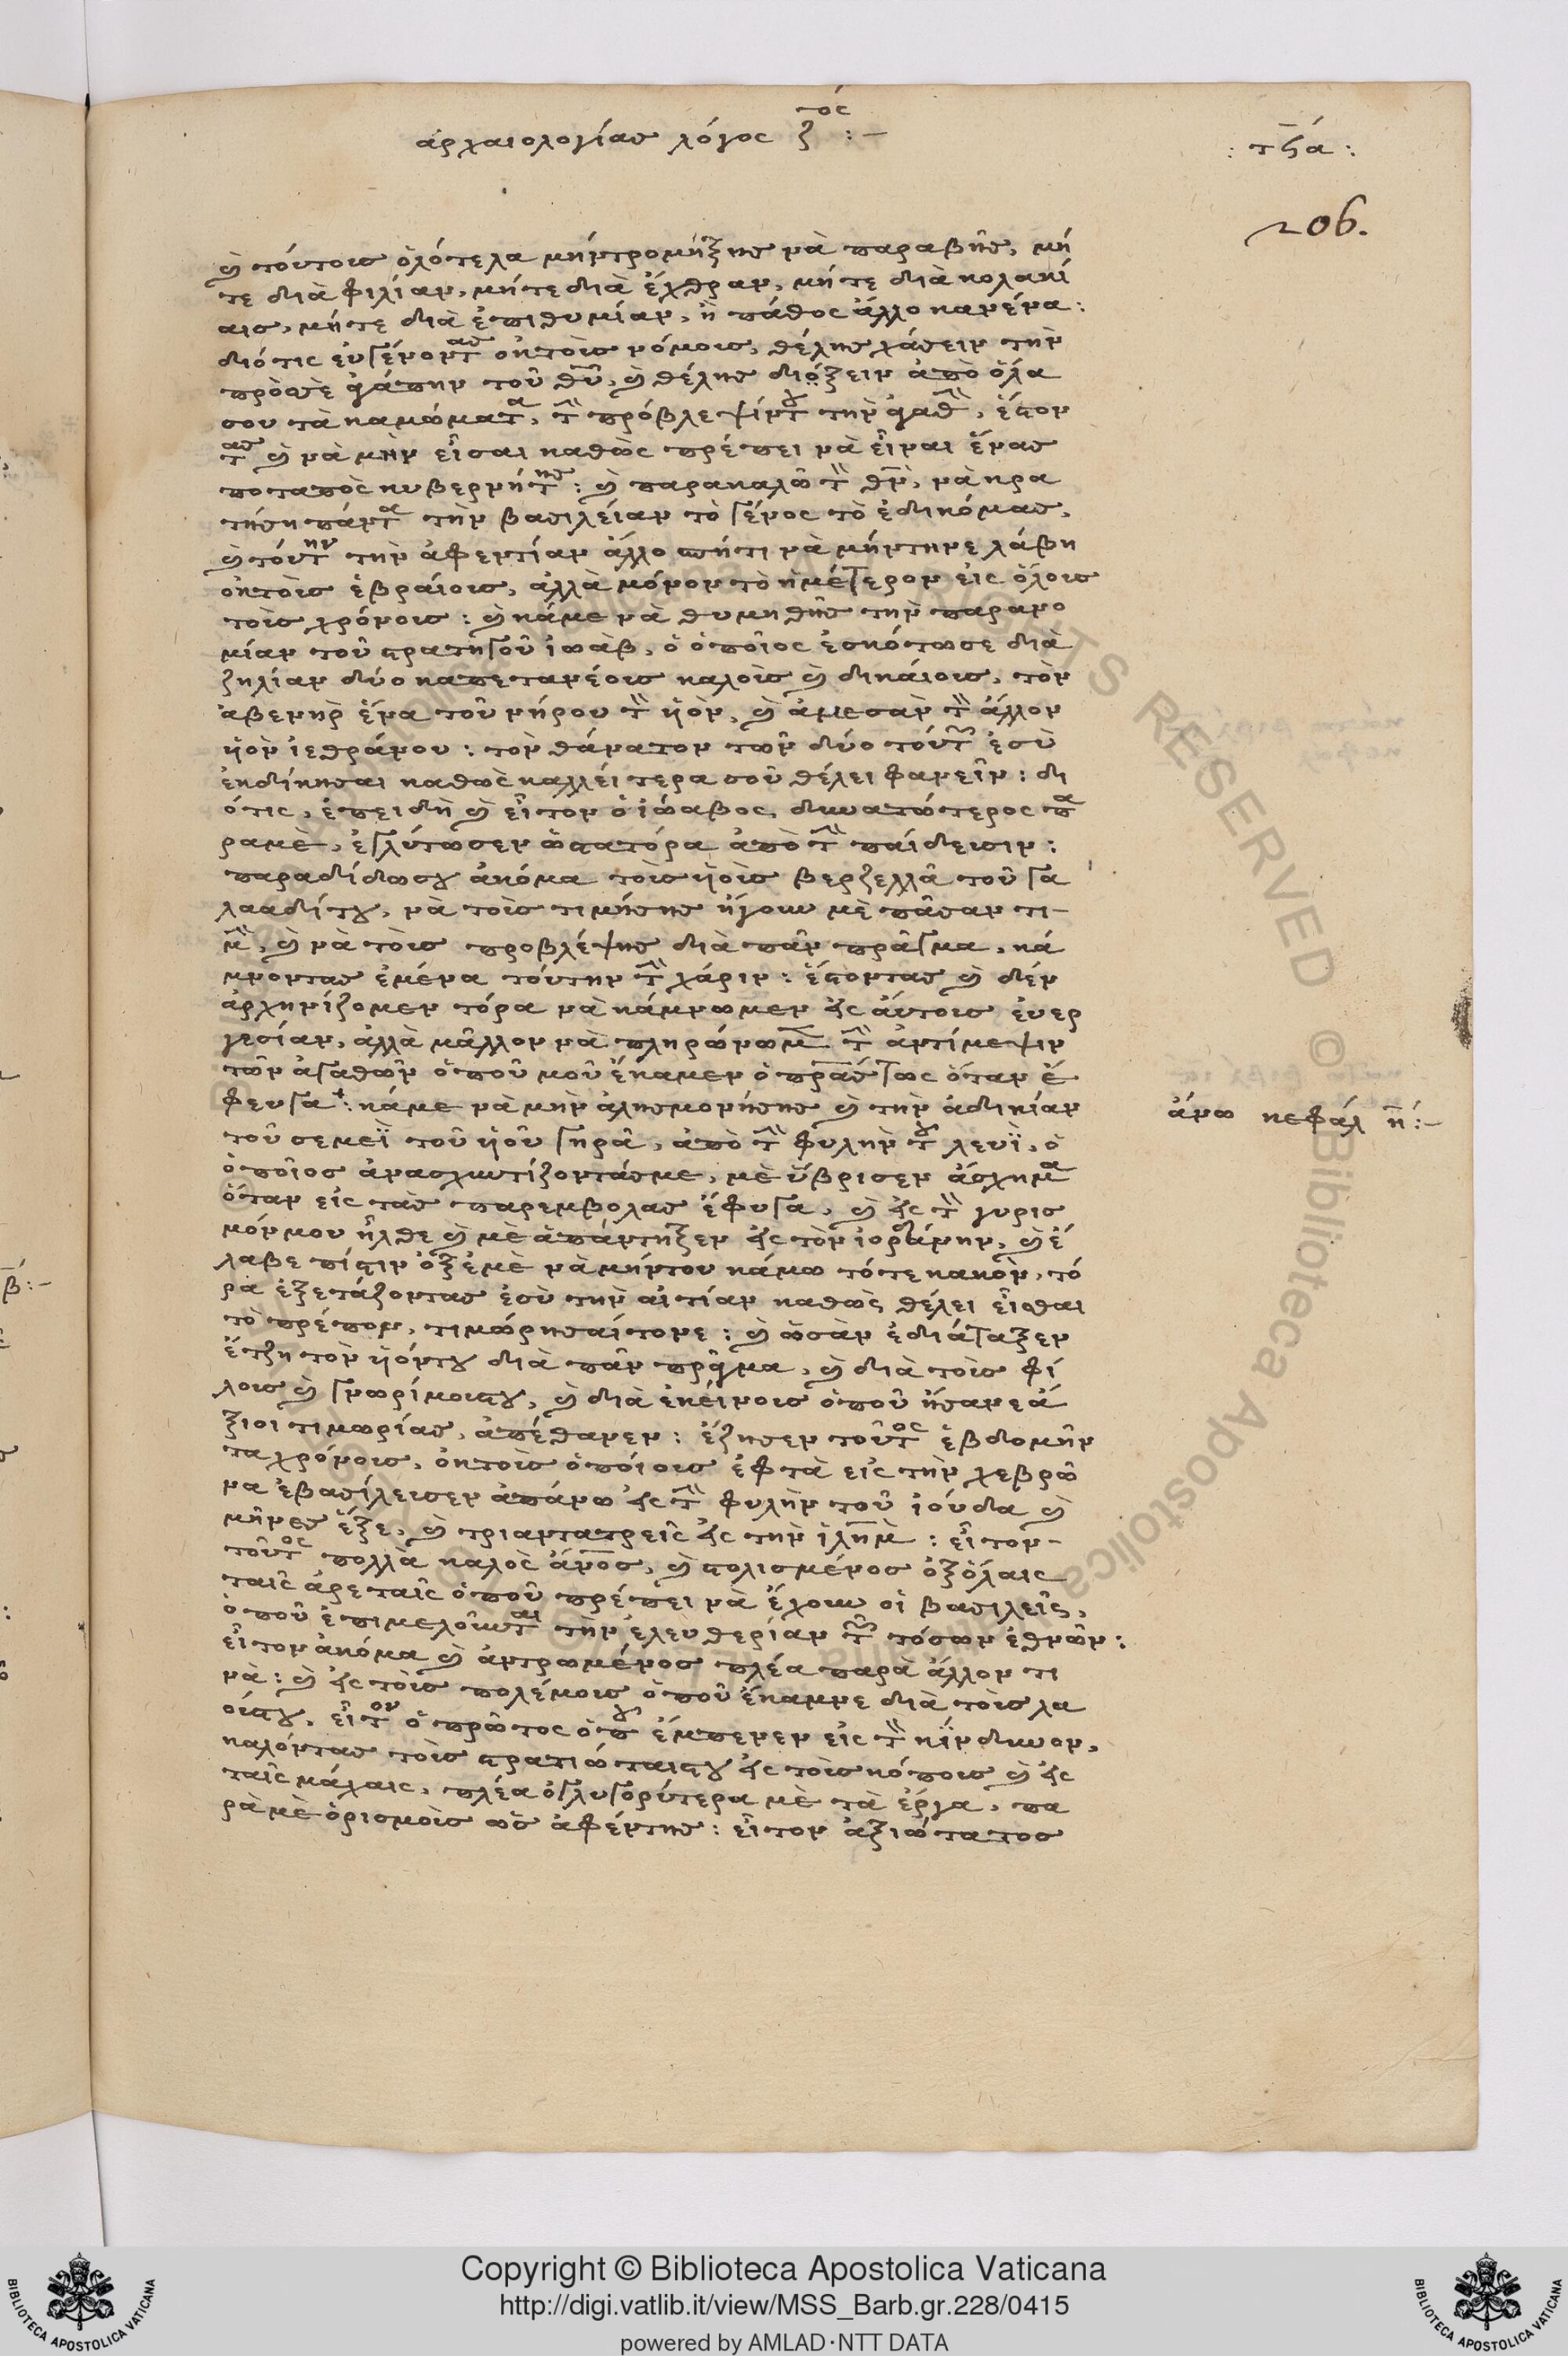 ἀρχαιολογίας λόγος ζ τος :-
: τϟα :
206.
κ τούτοις ὁλότελα μήν τρομήξης νὰ παραβῆς, μή
τε διὰ φιλίαν, μήτε διὰ ἔχθραν, μήτε διὰ κολακί
αις, μήτε διὰ ἐπιθυμίαν, ἢ πάθος ἄλλο κανένα :
διότις ἐνγένοντας ὀκτοῖς νόμοις, θέλης χάσειν τὴν
πρὸσὲ ἀγάπην τοῦ θῦ, κ θέλης διόξειν ἀπὸ ὅλα
σου τὰ καμώματα, τ πρόβλεψίντου τὴν ἀγαθ, ἔστον
τας κ νὰ μὴν εἶσαι καθὼς πρέπει νὰ εἶναι ἕνας
ποταπὸς κυβερνήτης : κ παρακαλῶ τ θν, νὰ κρα
τήση πάντα τὴν βασιλείαν τὸ γένος τὸ ἐδικόμας,
κ τούτην τὴν ἀφεντίαν ἄλλο σπήτι νὰ μήντηνε λάβη
ὀκτοῖς ἑβραίοις, ἀλλὰ μόνον τὸ ἡμέτερον εἰς ὅλοις
τοῖς χρόνοις : κ κάμε νὰ θυμηθῆς τὴν παρανο
μίαν τοῦ στρατηγοῦ ἰωὰβ, ὁ ὁποῖος ἐσκότωσε διὰ
ζηλίαν δύο καπετανέοις καλοὶς κ δικαίοις, τὸν
ἀβεννὴρ ἕνα τοῦ νήρου τ ὑὸν, κ ἀμεσαν τ ἄλλον
ὑὸν ἰεθράνου : τὸν θάνατον τῶν δύο τούτ ἐσὺ
ἐκδίκησαι καθὼς καλλείτερα σοῦ θέλει φανεῖν : δι
ότις, ἐπειδὴ κ εἶτον ὁ ἰώαβος δυνατώτερος πα
ραμὲ, ἐγλύτωσεν ὡστατόρα ἀπὸ τ παίδευσιν :
παραδίδωσου ἀκόμα τοὶς ὑοὶς βερζελλᾶ τοῦ γα
λααδίτου, νὰ τοὶς τιμήσης ἤγουν μὲ πᾶσαν τι-
μ, κ νὰ τοὶς προβλέψης διὰ πᾶν πρᾶγμα, κά
μνοντας ἐμένα τούτην τ χάριν : ἔστοντας κ δὲν
ἀρχηνίζομεν τόρα νὰ κάμνωμεν εἰς αὐτοις ἐυερ
γεσίαν, ἀλλὰ μᾶλλον νὰ πληρώνωμ τ ἀντίμεψιν
τῶν ἀγαθῶν ὁποῦ μοῦ ἔκαμεν ὁ πρστους ὅταν ἔ
φευγα : κάμε νὰ μὴν ἀλησμονήσης κ τὴν ἀδικίαν
τοῦ σεμεῒ τοῦ ὑοῦ γηρᾶ, ἀπὸ τ φυλὴν τοῦ λευῒ, ὁ
ὁποῖος ἀνασχυντίζοντάσμε, μὲ ὕβρισεν ἄσχημα
ὅταν εἰς τὰς παρεμβολὰς ἔφυγα, κ εἰς τ γυρισ
μόνμου ἦλθε κ μὲ ἀπάντηξεν εἰς τὸν ἰορδάνην, κ ἔ
λαβε πίστιν ὀξἐμὲ νὰ μήντου κάμω τότε κακὸν, τό
ρα ἐξετάζοντας ἐσὺ τὴν αἰτίαν καθὼς θέλει εἶσθαι
τὸ πρέπον, τιμώρησαίτονε : κ ὡσὰν ἐδιάταξεν
ἔτζη τὸν ὑόντου διὰ πᾶν πρᾶγμα, κ διὰ τοὶς φί
λοις κ γνωρίμοιςτου, κ διὰ ἐκείνοις ὁποῦ ἦσανε ἄ
ξιοι τιμωρίας, ἀπέθανεν : ἔζησεν τοῦτος ἑβδομῆν
τα χρόνοις, ὀκτοῖς ὁποίοις ἑφτὰ εἰς τὴν χεβρῶ
να ἐβασίλευσεν ἀπάνω εἰς τ φυλὴν τοῦ ἰούδα κ
μῆνες ἕξε, κ τριαντατρεῖς εἰς τὴν ἰλημ : εἶτον-
τοῦτος πολλὰ καλὸς ἄνος, κ στολισμένος ὀξόλαις
ταῖς ἀρεταῖς ὁποῦ πρέπει νὰ ἔχουν οἱ βασιλεῖς,
ὁποῦ ἐπιμελοῦνται τὴν ἐλευθερίαν τ τόσων ἐθνῶν :
εἶτον ἀκόμα κ ἀντρωμένος πλέα παρὰ ἄλλον τι
νὰ : κ εἰς τοὶς πολέμοις ὁποῦ ἔκαμνε διὰ τοὶς λα
οίςτου, εἶτον ὁ πρῶτος ὁποῦ ἔμπενεν εἰς τ κίνδυνον,
καλόντας τοὶς στρατιώταιςτου εἰς τοὶς κόποις κ εἰς
ταῖς μάχαις, πλέα ὀγλυγορύτερα μὲ τὰ ἔργα, πα
ρὰ μὲ ὁρισμοὶς ὡς ἀφέντης : εἶτον ἀξιώτατος
ἄνω κεφάλ η :-
β :-
Copyright © Biblioteca Apostolica Vaticana
http://digi.vatlib.it/view/MSS_Barb.gr.228/0415
powered by AMLAD·NTT DATA
BIBLIOTECA APOSTOLICA VATICANA
BIBLIOTECA APOSTOLICA VATICANA